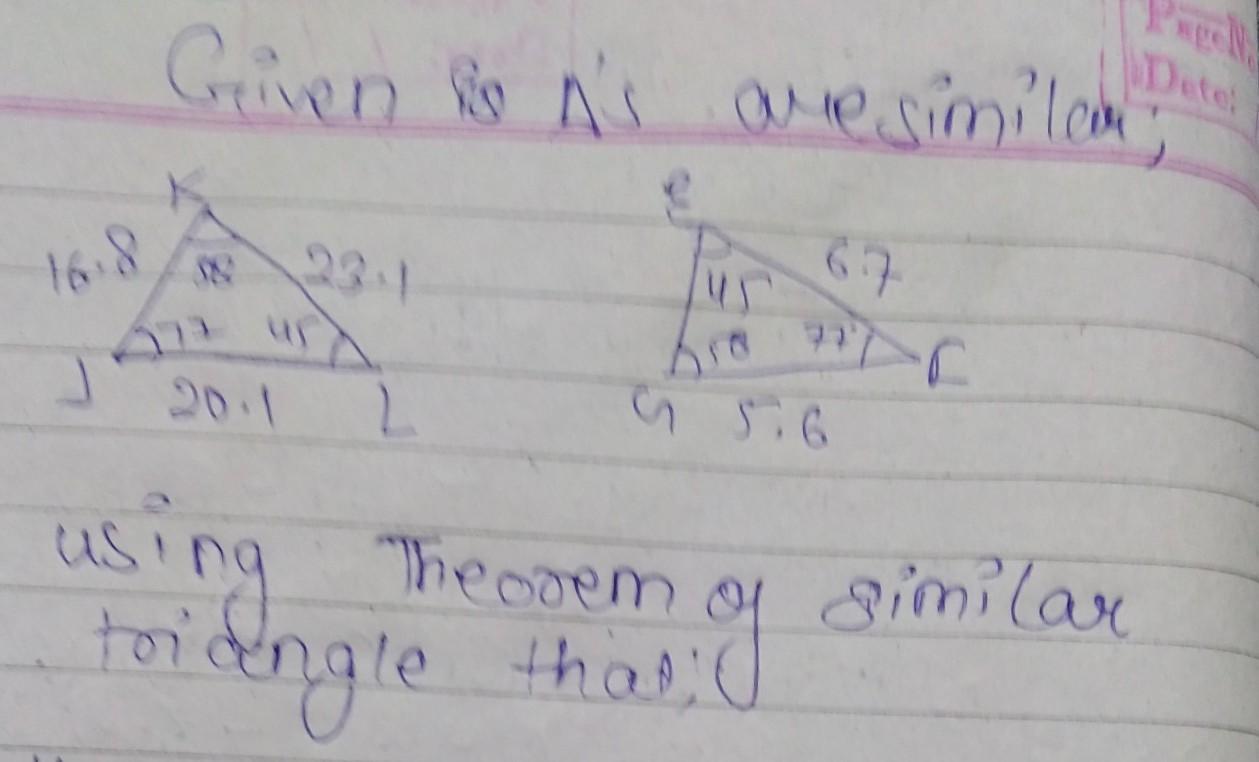 Page N
Date:
Given is Δ's are similar;
K
E
16.8
58
23.1
45
6.7
77
45
58
77
J
20.1
L
G
5.6
F
using Theorem of similar
triangle that;